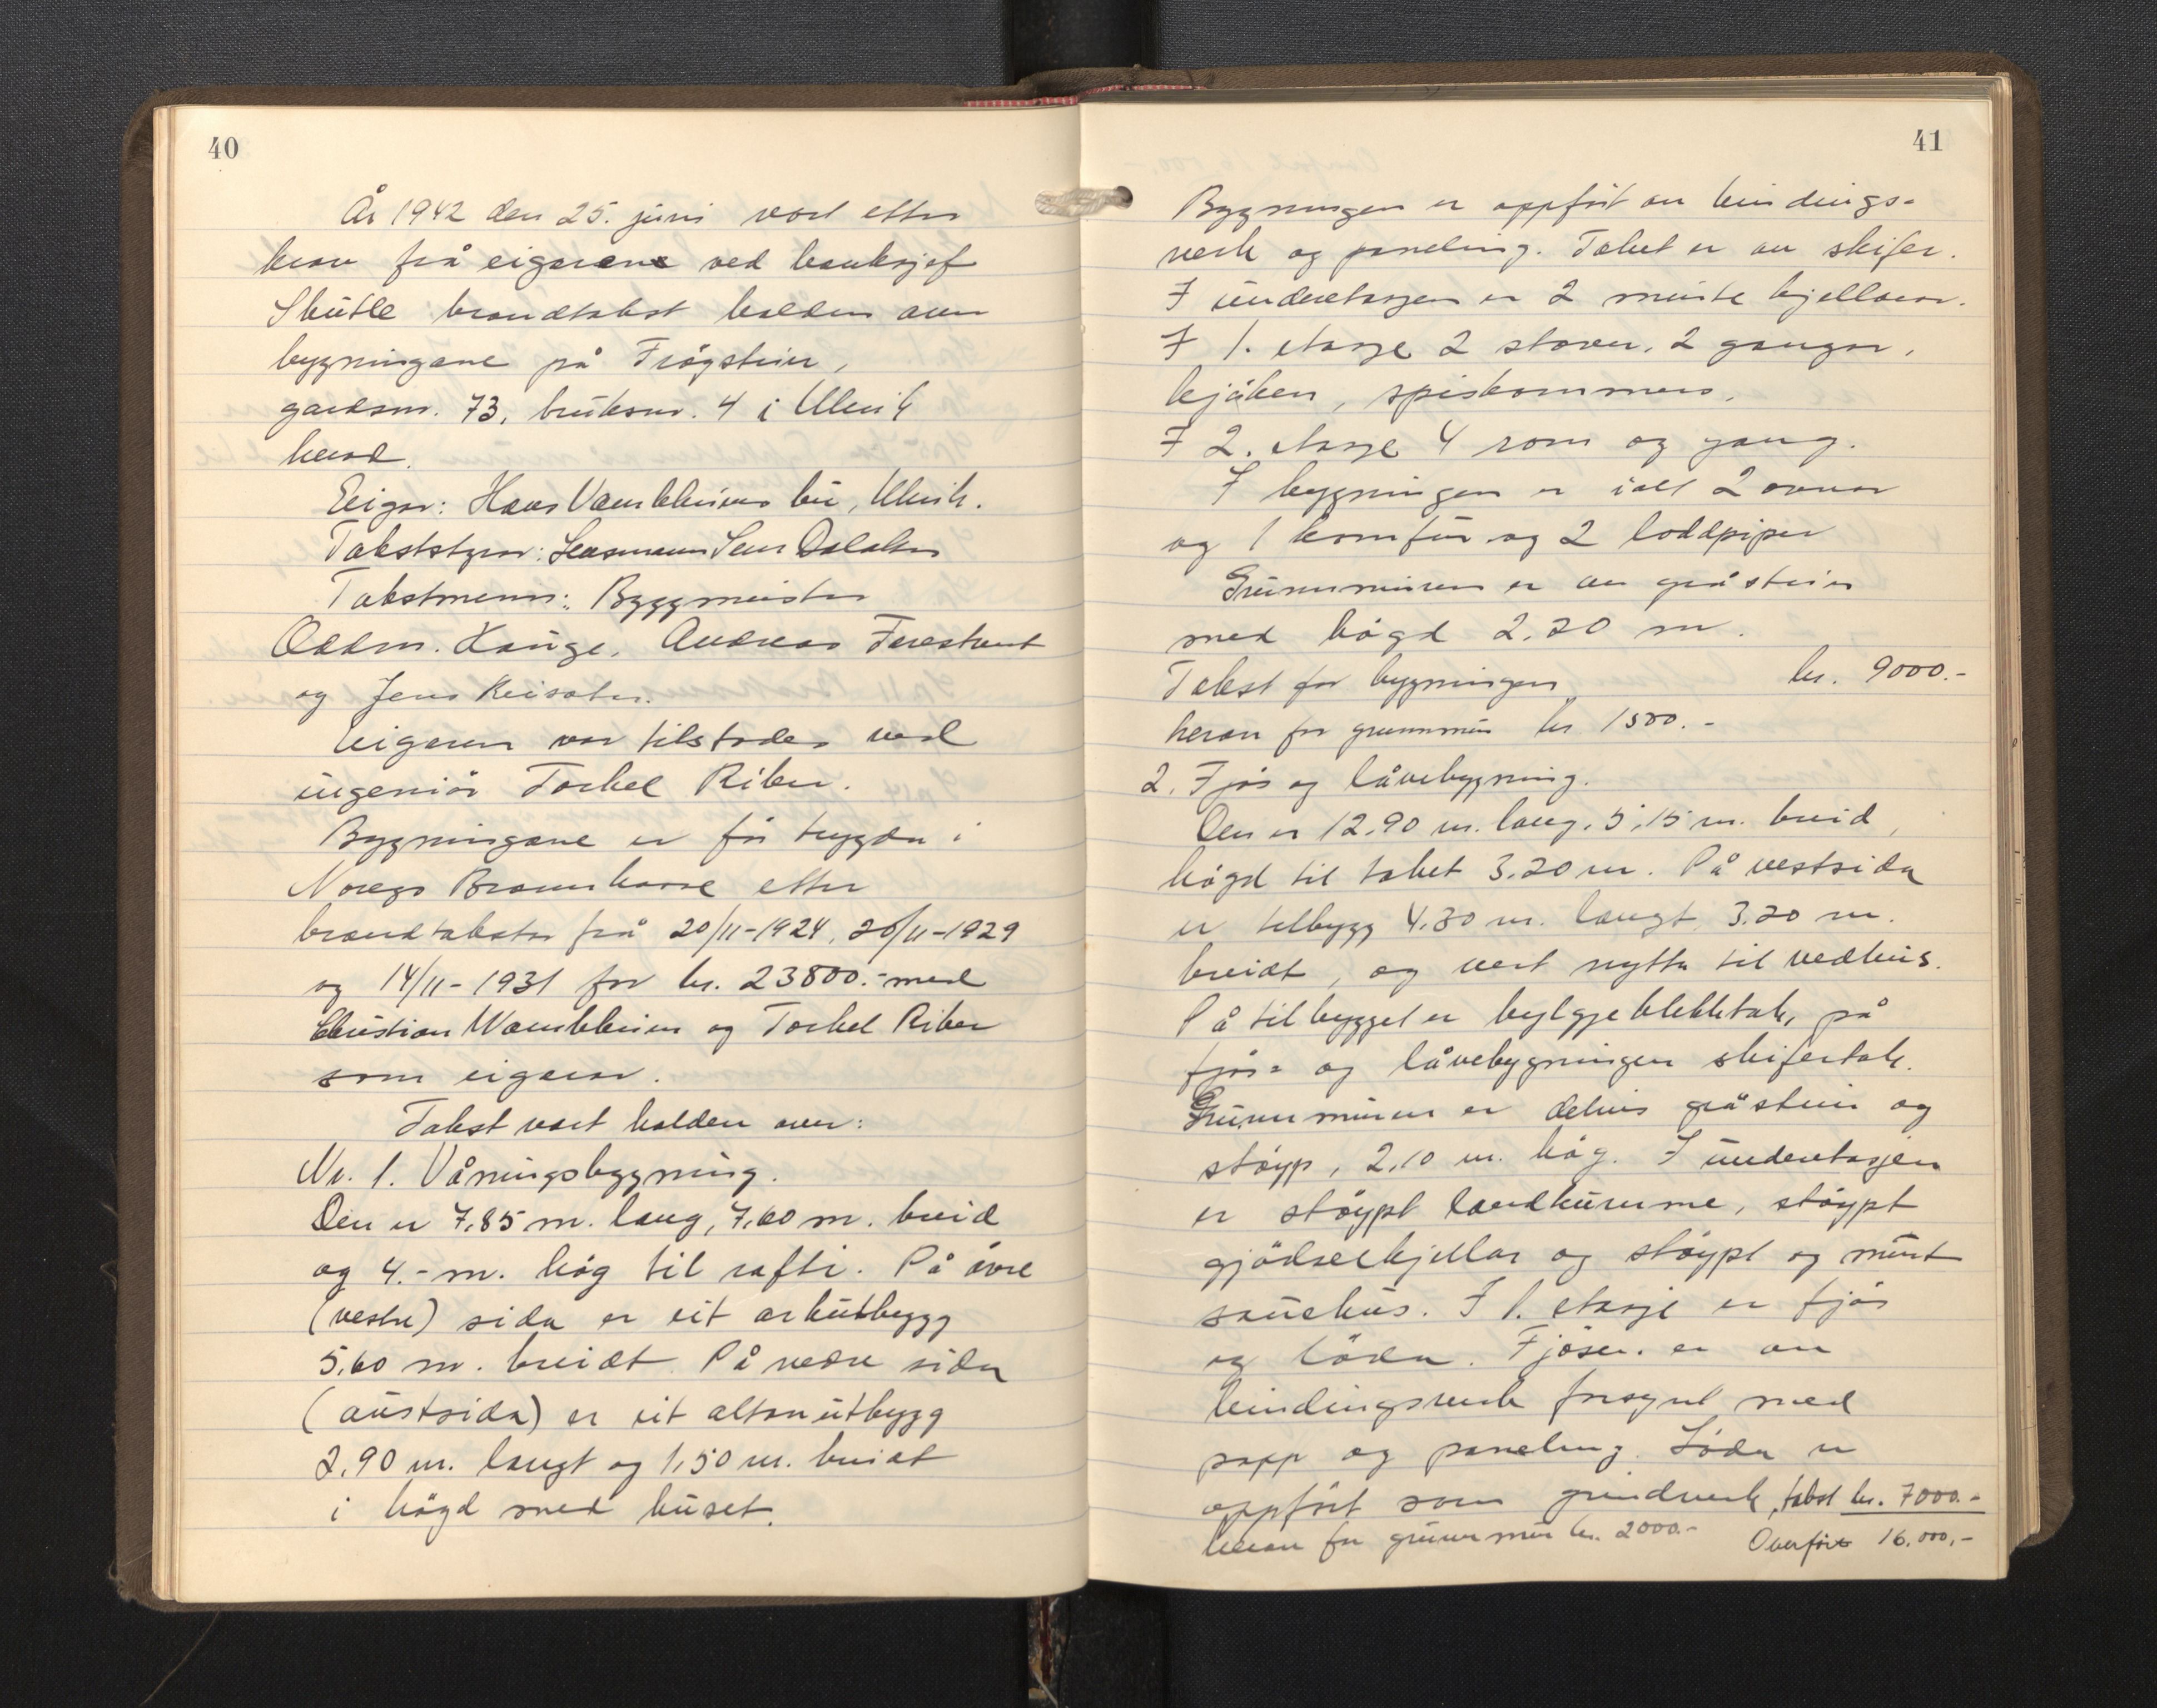 40
År 1942 den 25. juni vart etter
krav frå eigarane ved banksjef
Skutle brandtakst halden over
bygningane på Trögstein,
gardsnr. 73, bruksnr. 4 i Ulvik
herad.
Eigar: Hans Vambheims bu, Ulvik.
Takststyrar: Lensmann Sem Dalaker
Takstmenn: Byggmeister
Oddm. Hauge, Andreas Tveitestrand
og Jens Reisæter.
Eigaren var tilstades ved
ingeniör Torkel Riber.
Bygningane er för trygda i
Noregs Brannkasse etter
brandtakster frå 20/11-1924, 20/11-1929
og 14/11-1931 for kr. 23800.- med
Christian Wambheim og Torkel Riber
som eigarar.
Takst vart halden over:
Nr. 1. Våningsbygning.
Den er 7,85 m. lang, 7,60 m. breid
og 4.- m. hög til rafti. På övre
(vestre) sida er eit arkutbygg
5,60 m. breidt. På nedre sida
(austsida) er eit altanutbygg
2,90 m. langt og 1,50 m. breidt
i högd med huset.
41
Bygningen er oppfört av bindings-
verk og paneling. Taket er av skifer.
I underetasjen er 2 murte kjellarar.
I 1. etasje 2 stover, 2 gangar,
kjöken, spiskammers.
I 2. etasje 4 rom og gang.
I bygningen er ialt 2 omnar
og 1 komfur og 2 loddpiper
Grunnmuren er av gråstein
med högd 2,20 m.
Takst for bygningen kr. 9000.-
herav for grunnmur kr 1500.-
2. Fjös og låvebygning.
Den er 12,90 m. lang, 5,15 m. breid,
högd til taket 3,20 m. På vestsida
er tilbygg 4,30 m. langt, 3,20 m.
breidt, og vert nytta til vedhus.
På tilbygget er bylgjeblekktak, på
fjös- og låvebygningen skifertak.
Grunnmuren er delvis gråstein og
støyp, 2,10 m. hög. I underetasjen
er støypt landkumme, støypt
gjödselkjellar og støypt og murt
sauehus. I 1. etasje er fjös
og löda. Fjösen er av
bindingsverk forsynt med
papp og paneling. Löda er
oppfört som grindverk, takst kr. 7000.-
herav for grunnmur kr. 2000.- Overfört 16.000,-